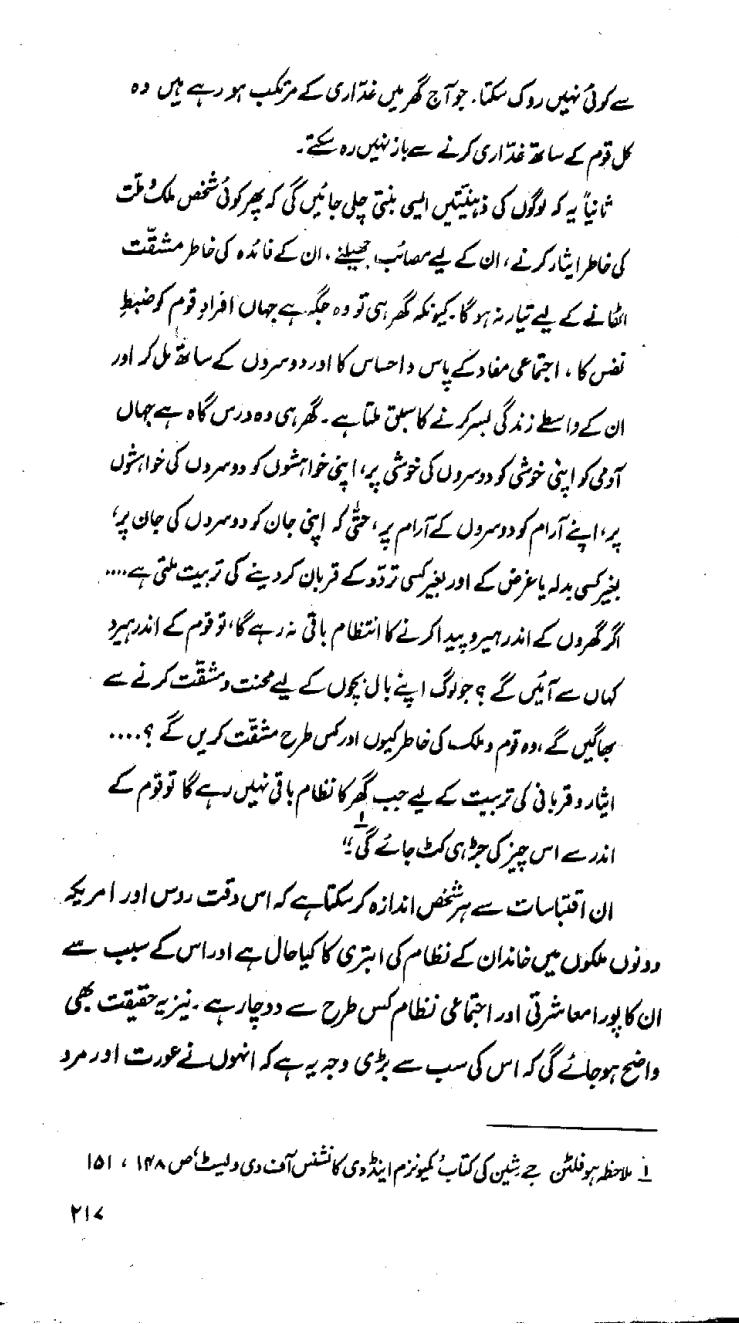 سے کوئی نہیں روک سکتا۔ جو آج گھر میں غدّاری کے مرتکب ہو رہے ہیں وہ
کل قوم کے ساتھ غدّاری کرنے سے باز نہیں رہ سکتے۔
ثانیاً یہ کہ لوگوں کی ذہنیتیں ایسی بنتی چلی جائیں گی کہ پھر کوئی شخص ملک و ملت
کی خاطر ایثار کرنے، ان کے لیے مصائب جھیلنے، ان کے فائدہ کی خاطر مشقّت
اٹھانے کے لیے تیار نہ ہو گا۔ کیونکہ گھر ہی تو وہ جگہ ہے جہاں افرادِ قوم کو ضبطِ
نفس کا، اجتماعی مفاد کے پاس و احساس کا اور دوسروں کے ساتھ مل کر اور
ان کے واسطے زندگی بسر کرنے کا سبق ملتا ہے۔ گھر ہی وہ درس گاہ ہے جہاں
آدمی کو اپنی خوشی کو دوسروں کی خوشی پر، اپنی خواہشوں کو دوسروں کی خواہشوں
پر، اپنے آرام کو دوسروں کے آرام پر، حتّٰی کہ اپنی جان کو دوسروں کی جان پر،
بغیر کسی بدلہ یا غرض کے اور بغیر کسی تردّد کے قربان کر دینے کی تربیت ملتی ہے....
اگر گھروں کے اندر ہیرو پیدا کرنے کا انتظام باقی نہ رہے گا، تو قوم کے اندر ہیرو
کہاں سے آئیں گے؟ جو لوگ اپنے بال بچوں کے لیے محنت و مشقّت کرنے سے
بھاگیں گے، وہ قوم و ملک کی خاطر کیوں اور کس طرح مشقّت کریں گے؟....
ایثار و قربانی کی تربیت کے لیے جب گھر کا نظام باقی نہیں رہے گا تو قوم کے
اندر سے اس چیز کی جڑ ہی کٹ جائے گی۔"۱
ان اقتباسات سے ہر شخص اندازہ کر سکتا ہے کہ اس وقت روس اور امریکہ
دونوں ملکوں میں خاندان کے نظام کی ابتری کا کیا حال ہے اور اس کے سبب سے
ان کا پورا معاشرتی اور اجتماعی نظام کس طرح سے دوچار ہے۔ نیز یہ حقیقت بھی
واضح ہو جائے گی کہ اس کی سب سے بڑی وجہ یہ ہے کہ انہوں نے عورت اور مرد
۱ ملاحظہ ہو فلٹن جے شین کی کتاب 'کمیونزم اینڈ دی کانشنس آف دی ویسٹ' ص ۱۴۸، ۱۵۱
۲۱۷